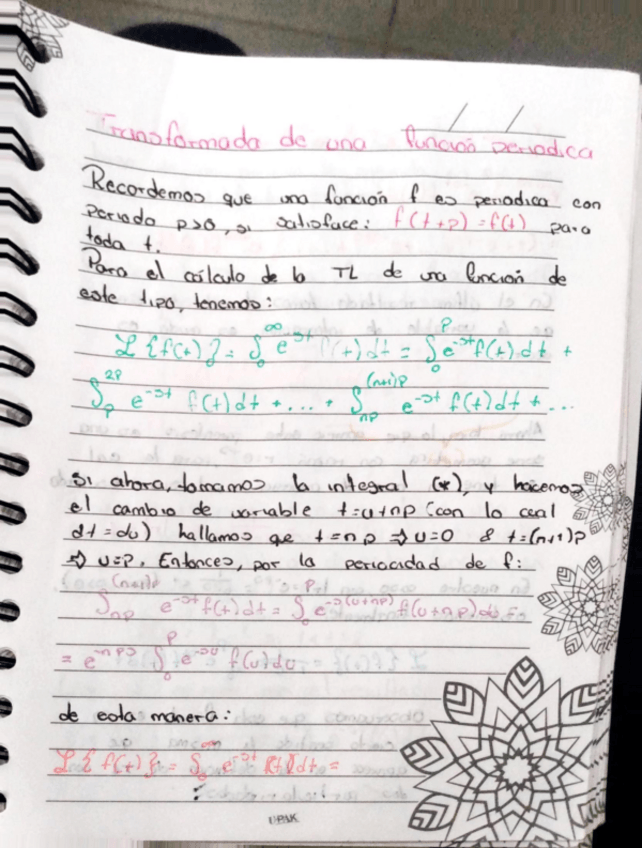 / /
Transformada de una función periodica
Recordemos que una función f es periodica con
periodo p>0, si satisface: f(t+p)=f(t) para
toda t.
Para el cálculo de la TL de una función de
este tipo, tenemos:
ℒ{f(t)} = ∫₀^∞ e^{-st} f(t)dt = ∫₀^P e^{-st} f(t)dt +
∫_P^{2P} e^{-st} f(t)dt + ... + ∫_{nP}^{(n+1)P} e^{-st} f(t)dt + ...
Si ahora, tomamos la integral (*), y hacemos
el cambio de variable t=u+np (con lo cual
dt=du) hallamos que t=np ⇒ u=0 & t=(n+1)p
⇒ u=p. Entonces, por la periocidad de f:
∫_{np}^{(n+1)p} e^{-st} f(t)dt = ∫₀^P e^{-s(u+np)} f(u+np)du =
= e^{-nps} ∫₀^P e^{-su} f(u)du
de esta manera:
ℒ{f(t)} = ∫₀^∞ e^{-st} f(t)dt =